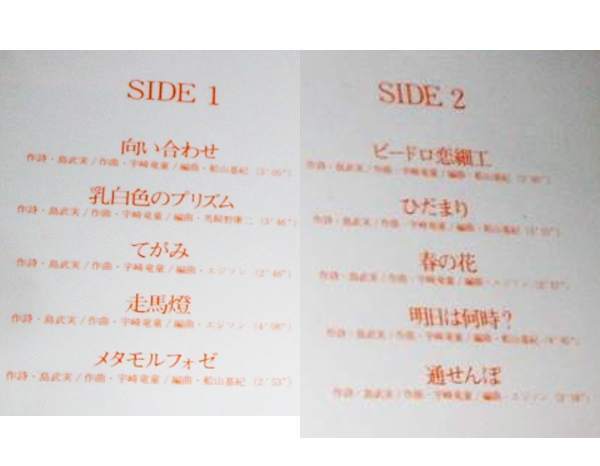 SIDE 1
向い合わせ
作詩・島武実/作曲・宇崎竜童/編曲・船山基紀
乳白色のプリズム
作詩・島武実/作曲・宇崎竜童/編曲・ (3'46")
てがみ
作詩・島武実/作曲・宇崎竜童/編曲・エジソン
走馬燈
作詩・島武実/作曲・宇崎竜童/編曲・エジソン
メタモルフォゼ
作詩・島武実/作曲・宇崎竜童/編曲・船山基紀 (2'53")
SIDE 2
ビードロ恋細工
作詩・島武実/作曲・宇崎竜童/編曲・船山基紀
ひだまり
作詩・島武実/作曲・宇崎竜童/編曲・船山基紀
春の花
作詩・島武実/作曲・宇崎竜童/編曲・エジソン
明日は何時?
作詩・島武実/作曲・宇崎竜童/編曲・船山基紀
通せんぼ
作詩・島武実/作曲・宇崎竜童/編曲・エジソン